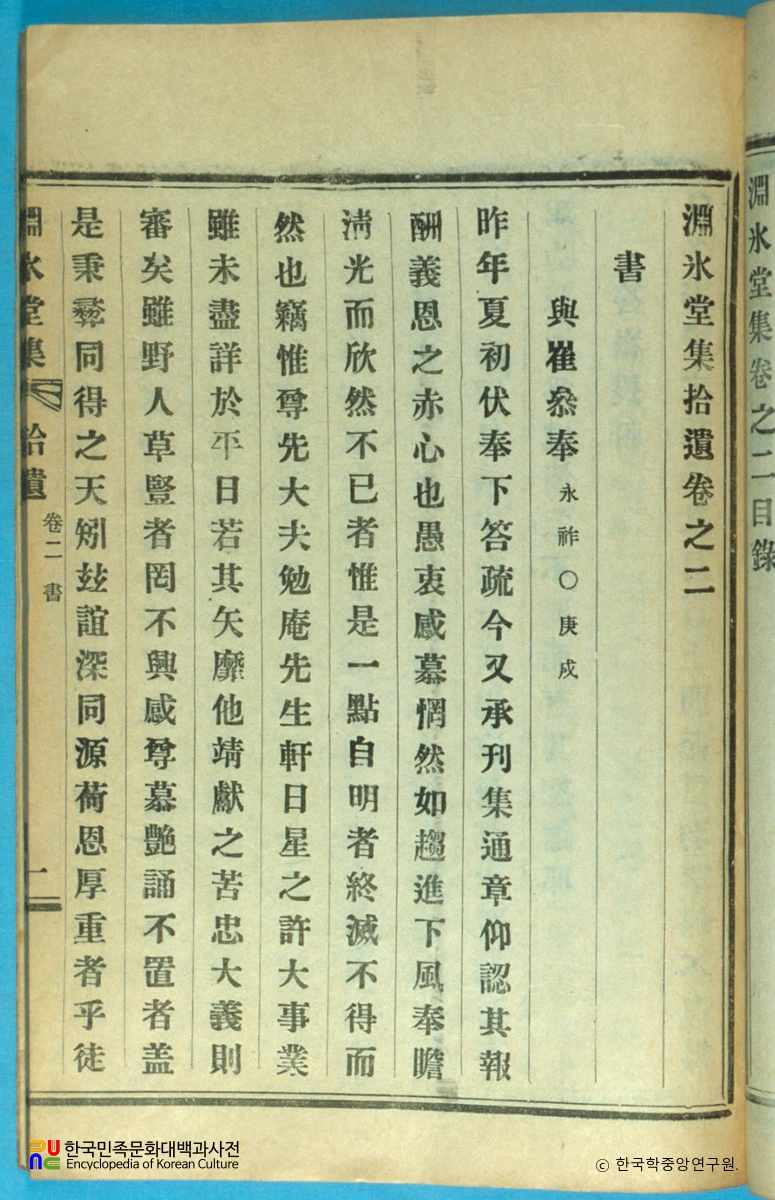 淵氷堂集卷之二目錄
淵氷堂集拾遺卷之二
書
與崔叅奉 永祚○庚戌
昨年夏初伏奉下答疏今又承刊集通章仰認其報
酬義恩之赤心也愚衷感慕惘然如趨進下風奉瞻
淸光而欣然不已者惟是一點自明者終滅不得而
然也竊惟尊先大夫勉庵先生軒日星之許大事業
雖未盡詳於平日若其矢靡他靖獻之苦忠大義則
審矣雖野人草豎者罔不興感尊慕艶誦不置者盖
是秉彛同得之天矧玆誼深同源荷恩厚重者乎徒
淵氷堂集 拾遺 卷二 書 二
한국민족문화대백과사전
Encyclopedia of Korean Culture
© 한국학중앙연구원.